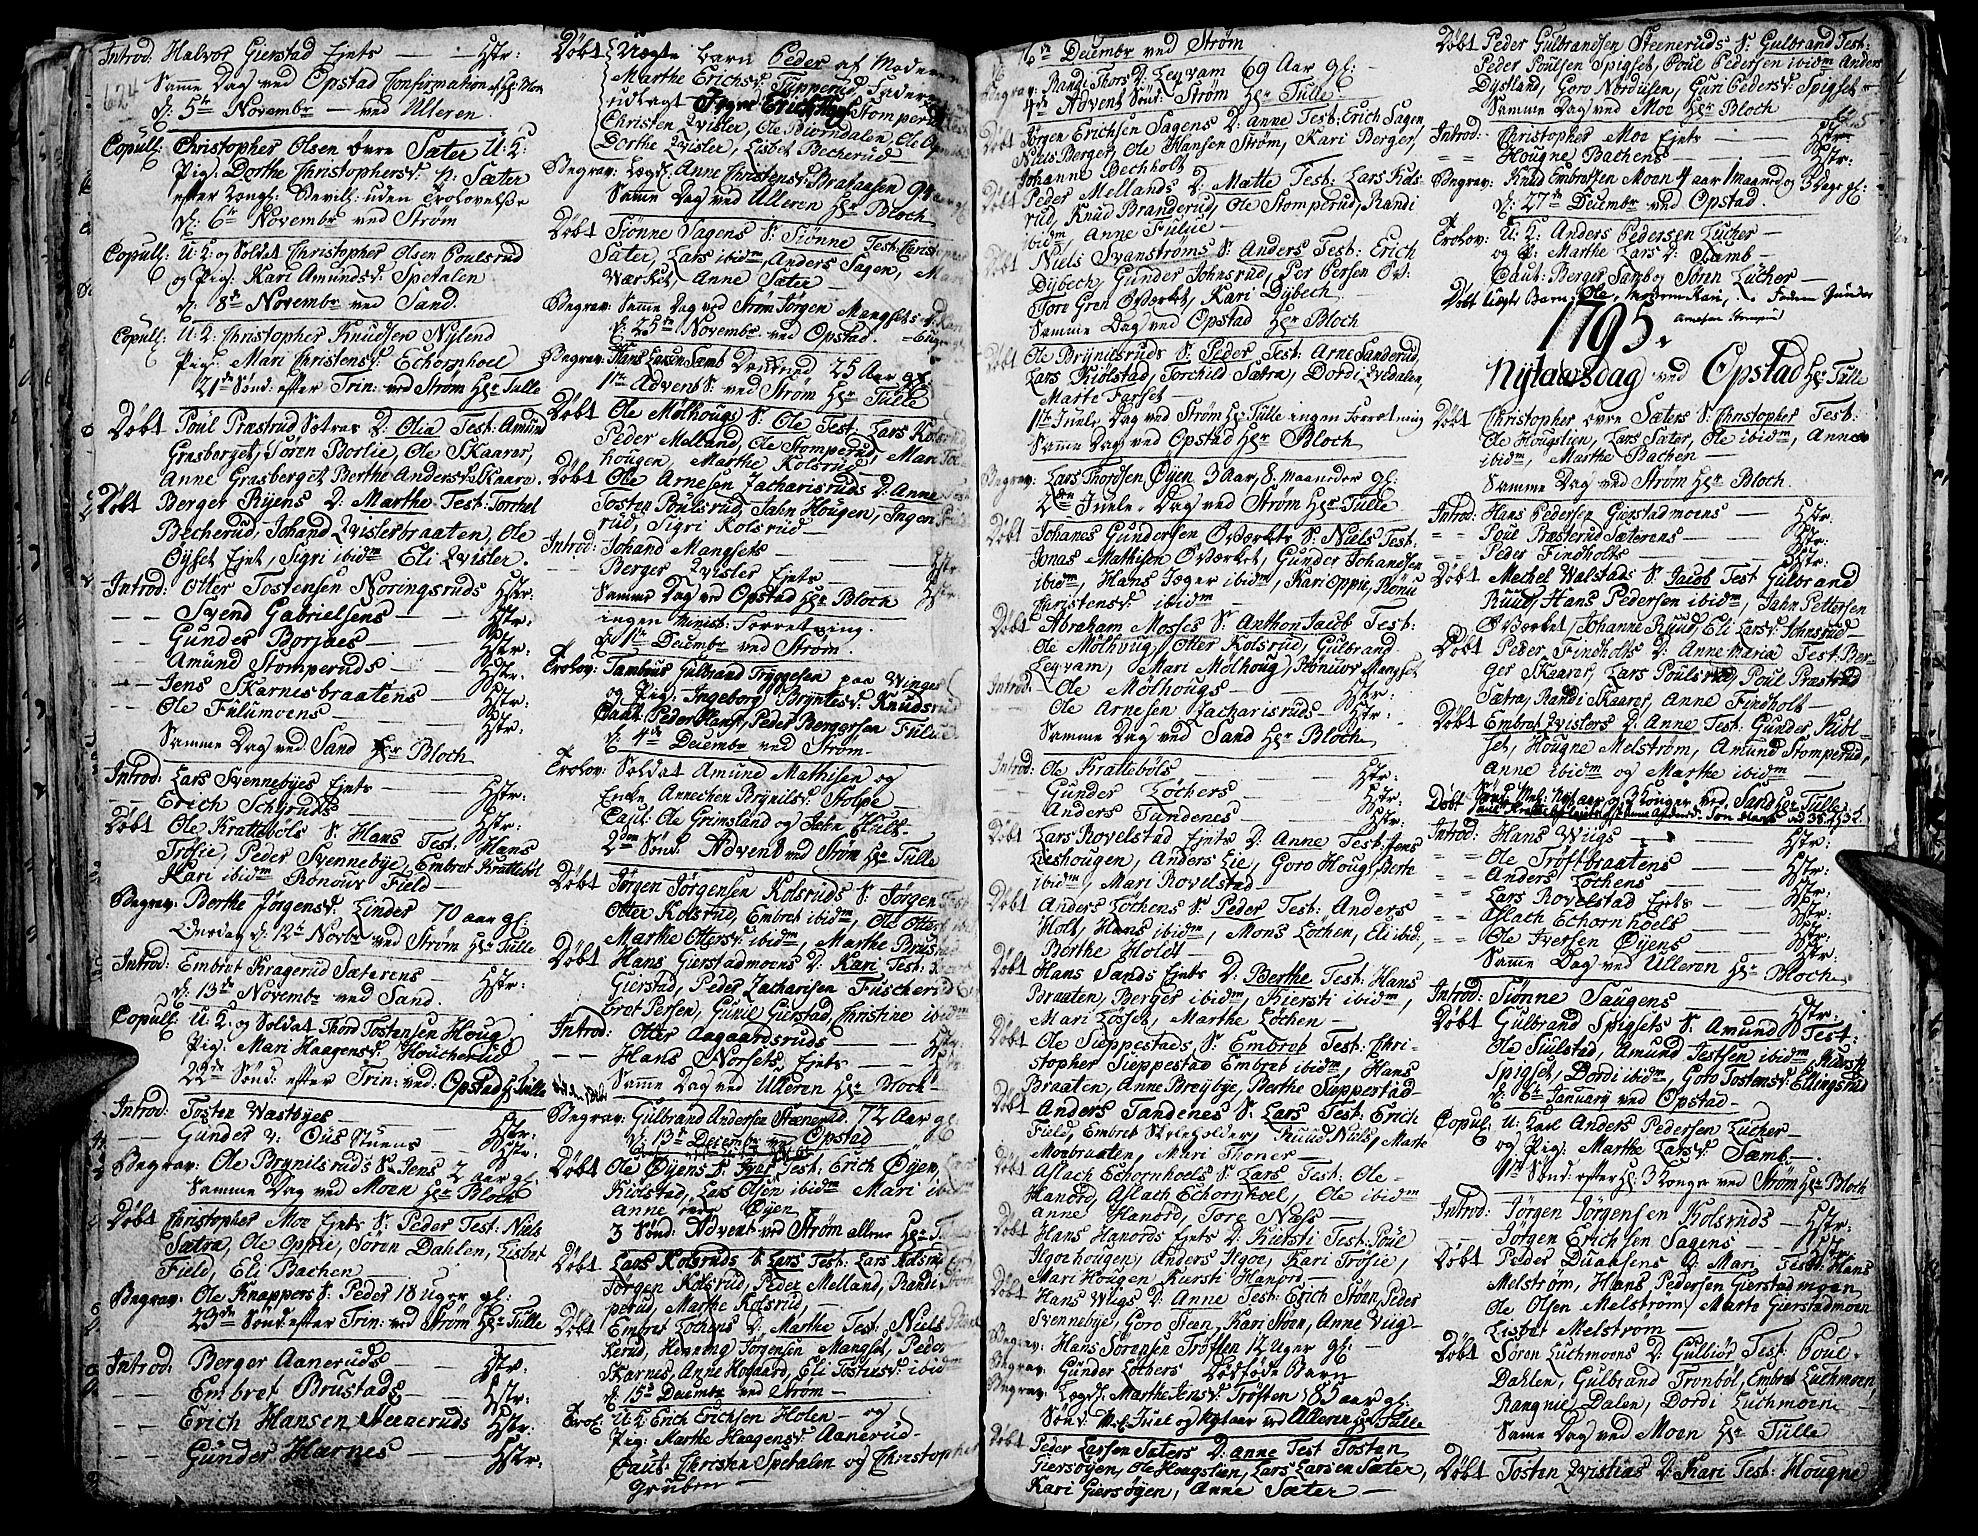 624
Introd: Halvor Gierstad Ejets — Hstr:
Samme Dag ved Opstad Confirmation af Hr
d: 5te Novembr — ved Ulleren
Copull: Christopher Olsen övre Sæter U: K:
Pig: Dorthe Christophersd: n: Sæter
efter Kongl: Bevill: uden Trolovelse
d: 6te Novembr ved Strøm
Copull: U: K: og Soldat Christopher Olsen Poulsrud
og Pig: Kari Amundsd: Spetalen
d: 8de Novembr ved Sand
Copull: U: K: Christopher Knudsen Nylend
Pig: Mari Christensd: Echornhoel
21de Sönd: efter Trin: ved Strøm Hr Tulle
Døbt Poul Præstrud Sætræs D: Olia Test: Amund
Grasberget, Søren Borlie, Ole Skaarer,
Anne Grasberget Berthe Andersd: Skaarer.
Døbt Berger Byens D: Marthe Test: Torchel
Becherud, Johand Qvislerbraaten, Ole
Oyset Ejet, Sigri ibidm Eli Qvisler.
Introd: Otter Tostensen Noringsruds Hstr:
— — Svend Gabrielsens — Hstr:
— Gunder Borjaes — Hstr:
— Amund Stomperuds — Hstr:
— Jens Skarnesbraatens Hstr:
— Ole Fulumoens — Hstr:
Samme Dag ved Sand Hr Bloch
Introd: Lars Svennebyes Ejets — Hstr:
— Erich Schyruds — Hstr:
Døbt Ole Krattebøls S: Hans Test: Hans
Trøsie, Peder Svennebye, Embret Krattebøl
Kari ibidm Rønouv Field —
Begrav: Berthe Jörgensd: Linder 70 aar gl:
d: 12te Novbr ved Strøm Hr Tulle
Introd: Embret Kragerud Sæterens Hstr:
d: 13de Novembr ved Sand.
Copull: U: K: og Soldat Thord Tostensen Houg
Pig: Mari Haagensd: Houcherud
22de Sönd: efter Trin: ved Opstad Hr Tulle
Introd: Tosten Wastbyes — Hstr:
— — Gunder Ous Stuens — Hstr:
Begrav: Ole Brynilsruds S: Jens 2 aar gl:
Samme Dag ved Moen Hr Bloch
Døbt Christopher Moe Ejets S: Peder Test: Niels
Sætra, Ole Oppie, Søren Dahlen, Lisbet
Field, Eli Bachen
Begrav: Ole Knappers S: Peder 18 uger gl:
23de Sönd: efter Trin: ved Strøm Hr Tulle
Introd: Berger Aaneruds — Hstr:
— — Embret Brustads — Hstr:
— Erich Hansen Steeneruds Hstr:
— Gunder Harnes — Hstr:
Døbt Uægte barn Peder af Moderen
Marthe Erichsd: Tupperud, Fader
udlagt Stomperud
Christen Qvisler, Ole Biorndalen, Ole
Dorthe Qvisler, Lisbet Becherud
Begrav: Lægd: Anne Christensd: Brataasen 94
Samme Dag ved Ulleren Hr Bloch
Døbt Siønne Sagens S: Siønne Test:
Sæter, Lars ibidm, Anders Sagen,
Værket, Anne Sæter —
Begrav: Samme Dag ved Strøm Jörgen Mangsets D:
d: 25de Novembr ved Opstad.
Begrav: Hans Larsen Samb 25 Aar gl:
1te Advents S: ved Strøm Hr Tulle
Døbt Ole Mølhougs S: Ole Test: Lars
Peder Melland, Ole Stomperud, Mari
hougen, Marthe Kolsrud —
Døbt Ole Arnesen Zacharisruds D: Anne
Tosten Poulsrud, Jahn Hougen, Ingen
rud, Sigri Kolsrud —
Introd: Johand Mangsets —
— — Berger Qvisler Ejets — Hstr
Samme Dag ved Opstad Hr Bloch Hstr
ingen Minist: Forretning.
d: 1te Decembr ved Strøm.
Trolov: Tambuur Gulbrand Tryggesen paa Winger
og Pig: Ingeborg Bryntesd: Knudsrud
Caut: Peder Hans, Peder Bergersen Fulu
d: 4de Decembr ved Strøm
Trolov: Soldat Amund Mathisen og
Enke Annechen Brynilsd: Stolpe —
Caut: Ole Grimsland og Jahn Huls.
2den Sönd: Advent ved Strøm Hr Tulle
Døbt Jørgen Jørgensen Kolsruds S: Jørgen
Otter Kolsrud, Embret ibidm, Ole Otter
Marthe Ottersd: ibidm, Marthe Brus
Døbt Hans Gierstadmoens D: Kari Test:
Gierstad, Peder Zacharisen Fuscherud
bret Persen, Guril Gierstad, Christine ibidm
Introd: Otter Aagaardsruds — Hstr
— — Hans Norsets Ejets — Hstr
Samme Dag ved Ulleren Hr Bloch
Begrav: Gulbrand Andersen Steenerud 72 Aar gl:
d: 13de Decembr ved Opstad
Døbt Ole Øyens S: Iver Test: Erich Øyen,
Kiølstad, Lars Olsen ibidm Mari
Anne övre Øyen
3 Sönd: Advent ved Strøm allene Hr
Døbt Lars Kolsruds S: Lars Test: Lars
Jørgen Kolsrud, Peder Melland, Randi
perud, Marthe Kolsrud,
Døbt Embret Lochens D: Marthe Test: Niels
kerud, Henning Jørgensen Mangset, Peder
Skarnes, Anne Hogaard, Eli ibidm
d: 15de Decembr ved Strøm —
Trol: U: K: Erich Erichsen Holen — og
Pig: Marthe Haagensd: Aanerud —
Caut: Christen Spetalen og Christopher
Gruben —
16de Decembr ved Strøm
Begrav: Randi Thorsd: Legvam 69 Aar gl:
4de Advent Sönd: Strøm Hr Tulle
Døbt Jørgen Erichsen Sagens D: Anne Test: Erich Sagen
Niels Berger, Ole Hansen Strøm, Kari Berger,
Johanne Bechholt
Døbt Peder Mellands D: Matte Test: Lars Kols-
rud, Knud Branderud, Ole Stomperud, Randi
ibidm, Anne Fulue —
Døbt Niels Svanstrøms S: Anders Test: Erich
Dybech, Gunder Johnsrud, Per Persen Ov:
Tore Gren Oværket, Kari Dybech
Samme Dag ved Opstad Hr Bloch
Døbt Ole Brynilsruds S: Peder Test: Arne Sanderud,
Lars Kiølstad, Torchild Sætra, Dordi Qvedalen,
Marte Farset —
1te Juele Dag ved Strøm Hr Tulle ingen Forretning
Samme Dag ved Opstad Hr Bloch
Begrav: Lars Thordsen Øyen 3 Aar, 8 Maaneder gl:
2den Juele Dag ved Strøm Hr Tulle
Døbt Johanes Gundersen Oværkets S: Niels Test.
Jonas Mathisen Oværket, Gunder Johansen
ibidm, Hans Jæger ibidm, Kari Oppie, Rönu
Christensd: ibidm
Døbt Abraham Mosses S: Anthon Jacob Test:
Ole Mølhoug, Otter Kolsrud, Gulbrand
Legvam, Mari Mølhoug, Rönnuv Mangset
Introd: Ole Mølhougs — Hstr:
Ole Arnesen Zacharisruds — Hstr:
Samme Dag ved Sand Hr Bloch
Introd: Ole Krattebøls — Hstr:
Gunder Lochers — Hstr:
Anders Tandenes — Hstr:
Døbt Lars Rovelstad Ejets D: Anne Test: Jens
Lieshougen, Anders Lie, Goro Houg, Berte
ibidm, Mari Rovelstad —
Døbt Anders Löchens S: Peder Test: Anders
Holt, Hans ibidm, Mons Löchen, Eli ibid:,
Børthe Holdt —
Døbt Hans Sands Ejets D: Berthe Test: Hans
Braaten, Berger ibidm, Kiersti ibidm,
Mari Losset, Marthe Løchen —
Døbt Ole Sieppestads S: Embret Test: Chri-
stopher Sieppestad Embret ibidm, Hans
Braaten, Anne Breybye, Berthe Sieppestad
Døbt Anders Tandenes S: Lars Test: Erich
Field, Embret Skoleholder, Knud Niels, Marte
Moebraaten, Mari Thoner —
Døbt Aslach Echornhoels S: Lars Test: Ole
Hanord, Aslach Echornhoel, Ole ibidm
Anne Hanord, Tore Næss —
Døbt Hans Hanords Ejets D: Kiersti Test: Poul
Ilgoehougen, Anders Ilgoe, Kari Trøsie,
Mari Hougen Kiersti Hanord —
Døbt Hans Wiigs D: Anne Test: Erich Støen, Peder
Svennebye, Goro Steen, Kari Støen, Anne Viig —
Begrav: Hans Sørensen Trøften 12 Uger gl: —
Begrav: Gunder Lochers Dødfødt Barn
Begrav: Lægd: Marthe Jensd: Trøften 85 aar gl:
Sönd: Ml: Juul og Nytaar ved Ulleren Hr Tulle
Døbt Peder Larsen Sæters D: Anne Test Tosten
Giersøyen, Ole Hougstien, Lars Larsen Sæter,
Kari Giersøyen, Anne Sæter —
Døbt Peder Gulbrandsen Steeneruds S: Gulbrand Test:
Peder Poulsen Spigset, Poul Pedersen ibidm Anders
Dystland, Goro Nordusen, Guri Pedersd: Spigset —
Samme Dag ved Moe Hr Bloch
Introd: Christopher Moe Ejets — Hstr:
— — Hougne Bachens — Hstr:
Begrav: Knud Embretsen Moen 4 aar 1 maaned og 3 Dage gl:
d: 27de Decembr ved Opstad
Trolov: U: K: Anders Pedersen Lucher —
og P: Marthe Larsd: Samb —
Caut: Berger Samb og Sören Lucher —
Døbt Uægte Barn, Ole, Moderen Kari, Faderen Gunder
Arnesen
1795.
Nytaarsdag ved Opstad Hr Tulle
Døbt Christopher övre Sæters S: Christopher Test:
Ole Hougstien, Lars Sæter, Ole ibidm, Anne
ibidm, Marthe Bachen —
Samme Dag ved Strøm Hr Bloch.
Introd: Hans Pedersen Gierstadmoens — Hstr.
— — Poul Præsterud Sæterens — Hstr:
— — Peder Findholts — Hstr:
Døbt Mechel Walstads S: Jacob Test Gulbrand
Ruud, Hans Pedersen ibidm, Jahn Pettersen
Oværket, Johanne Ruud, Eli Larsd: Johnsrud —
Døbt Peder Findholts D: Anne Maria Test: Ber-
ger Skaarer, Lars Poulsrud, Poul Præstrud
Sætra, Randi Skaarer, Anne Findholt —
Døbt Embret Qvislers D: Anne Test: Gunder
set, Hougne Melstrøm, Amund Stomperud,
Anne ibidm og Marthe ibidm —
Døbt Sönd: Mel: Nytaar og 3 Konger ved Sand Hr Tulle
Introd: Hans Wiigs — Hstr:
— — Ole Trøftbraatens — Hstr:
— — Anders Lochens — Hstr:
— — Lars Rovelstad Ejets — Hstr:
— — Aslach Echornhoels — Hstr:
— — Ole Iversen Øyens — Hstr:
Samme Dag ved Ulleren Hr Bloch
Introd: Siønne Saugens — Hstr:
Døbt Gulbrand Spigsets S: Amund Test:
Ole Siulstad, Amund Jestsen ibidm, Kiersti
Spigset, Dordi ibidm, Goro Tostensd: Ellingsrud
d: 6te January ved Opstad —
Copul: U: Karl Anders Pedersen Lucher —
og Pig: Marthe Larsd: Samb —
1te Sönd: efter Hl: 3 Konger ved Strøm Hr Bloch
Introd: Jørgen Jörgensen Kolsruds — Hstr:
Jørgen Erichsen Sagens — Hstr:
Døbt Peder Duaasens D: Mari Test: Hans
Melstrøm, Hans Pedersen Gierstadmoen
Ole Olsen Melstrøm, Marte Gierstadmoen
Lisbet Melstrøm —
Døbt Søren Luchmoens D: Gulbiör Test: Poul
Dahlen, Gulbrand Tronböl, Embret Luchmoen,
Rangnie Dalen, Dordi Luchmoen —
Samme Dag ved Moen Hr Tulle
Døbt Tosten Qvislias D: Kari Test: Hougne